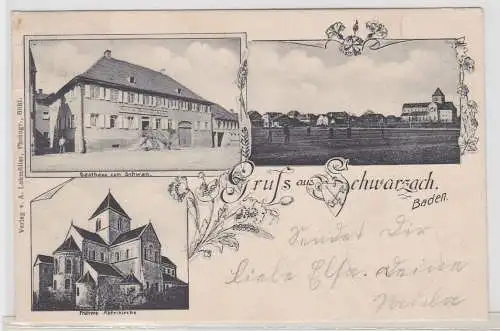 Verlag v. A. Lohmüller, Photogr., Bühl.
Gasthaus zum Schwan.
Gruss aus Schwarzach.
Baden.
Frühere Abteikirche
Sendet Dir
liebe Elsa. Deine